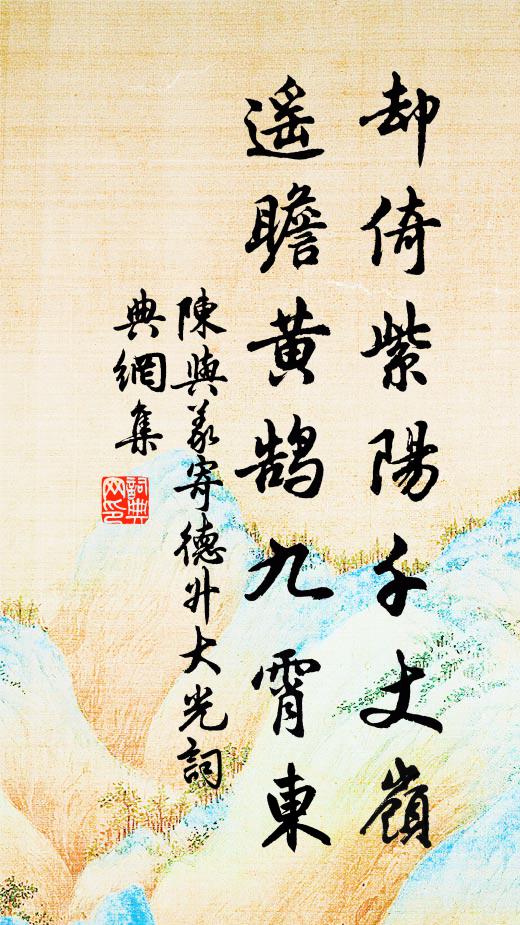 却倚紫陽千丈嶺
遥瞻黄鹄九霄東
陳與義寄德升大光詞
典網集
詞典網印